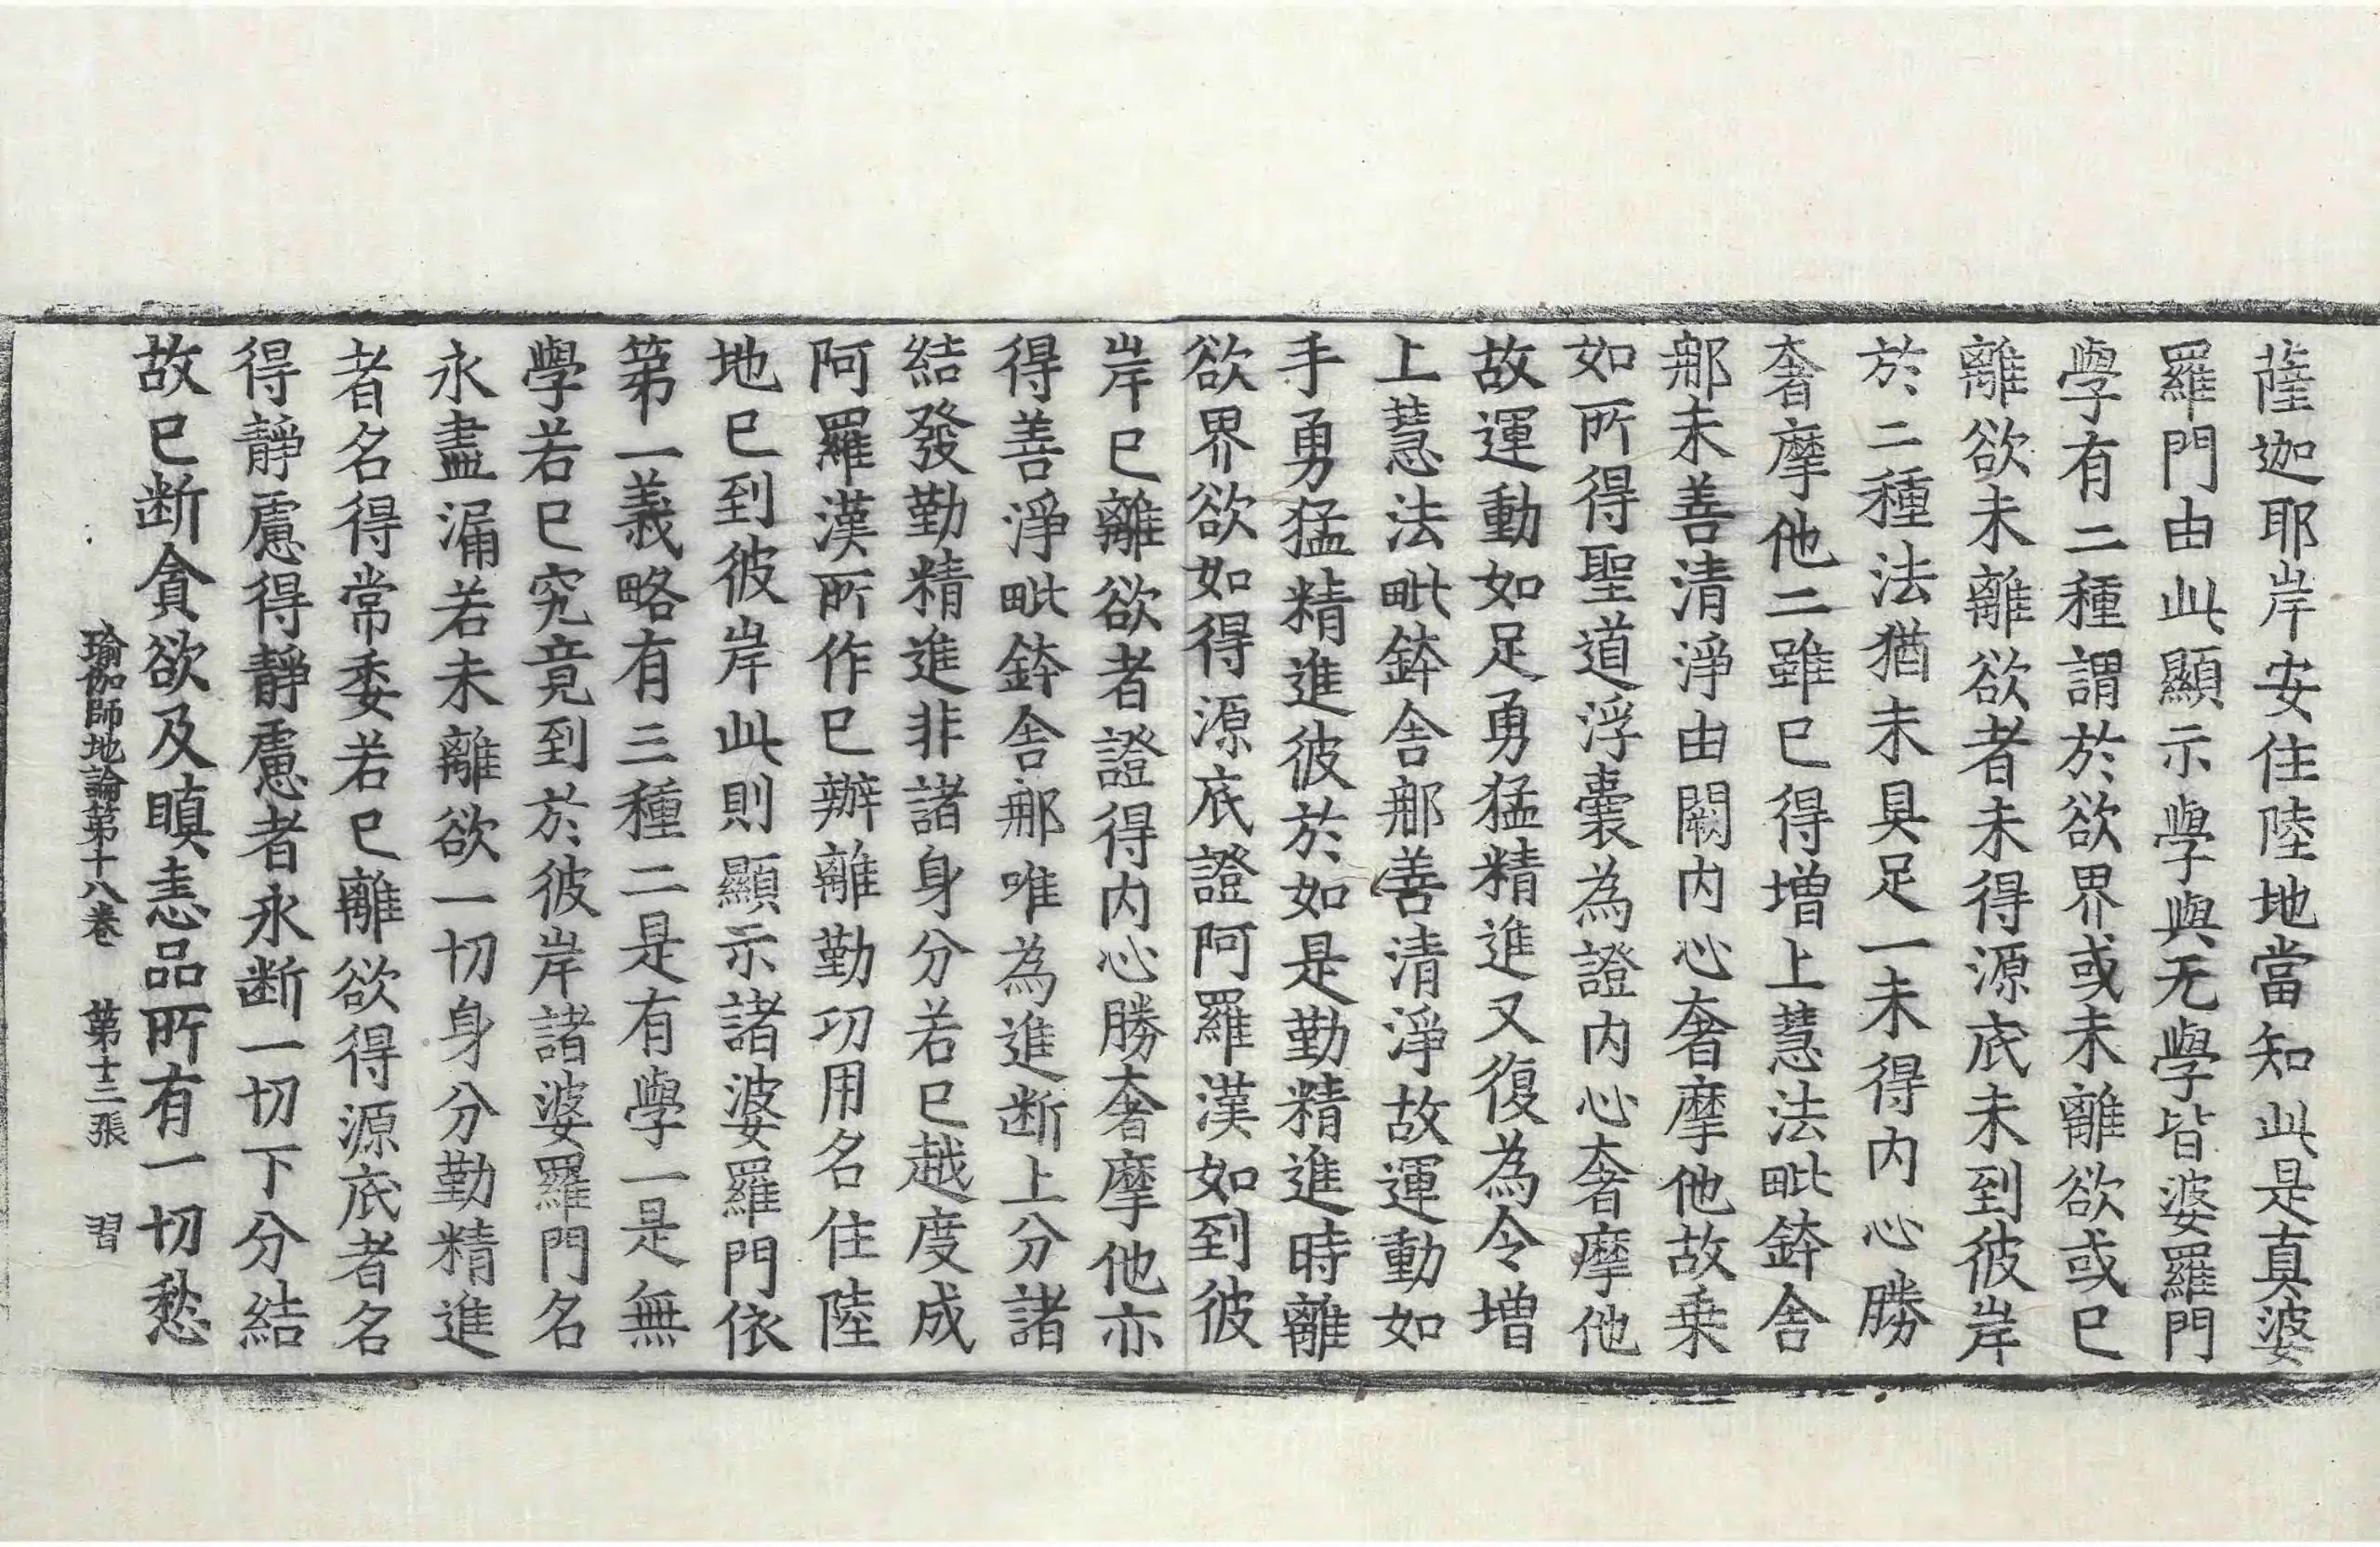 薩迦耶岸安住陸地當知此是真婆
羅門由此顯示學與无學皆婆羅門
學有二種謂於欲界或未離欲或已
離欲未離欲者未得源底未到彼岸
於二種法猶未具足一未得内心勝
奢摩他二雖已得增上慧法毗鉢舍
那未善清淨由闕内心奢摩他故乗
如所得聖道浮囊為證内心奢摩他
故運動如足勇猛精進又復為令增
上慧法毗鉢舍那善清淨故運動如
手勇猛精進彼於如是勤精進時離
欲界欲如得源底證阿羅漢如到彼
岸已離欲者證得内心勝奢摩他亦
得善淨毗鉢舍那唯為進断上分諸
結發勤精進非諸身分若已越度成
阿羅漢所作已辦離勤功用名住陸
地已到彼岸此則顯示諸婆羅門依
第一義略有三種二是有學一是無
學若已究竟到於彼岸諸婆羅門名
永盡漏若未離欲一切身分勤精進
者名得常委若已離欲得源底者名
得靜慮得靜慮者永断一切下分結
故已断貪欲及瞋恚品所有一切愁
瑜伽師地論第十八卷　第十三張　習